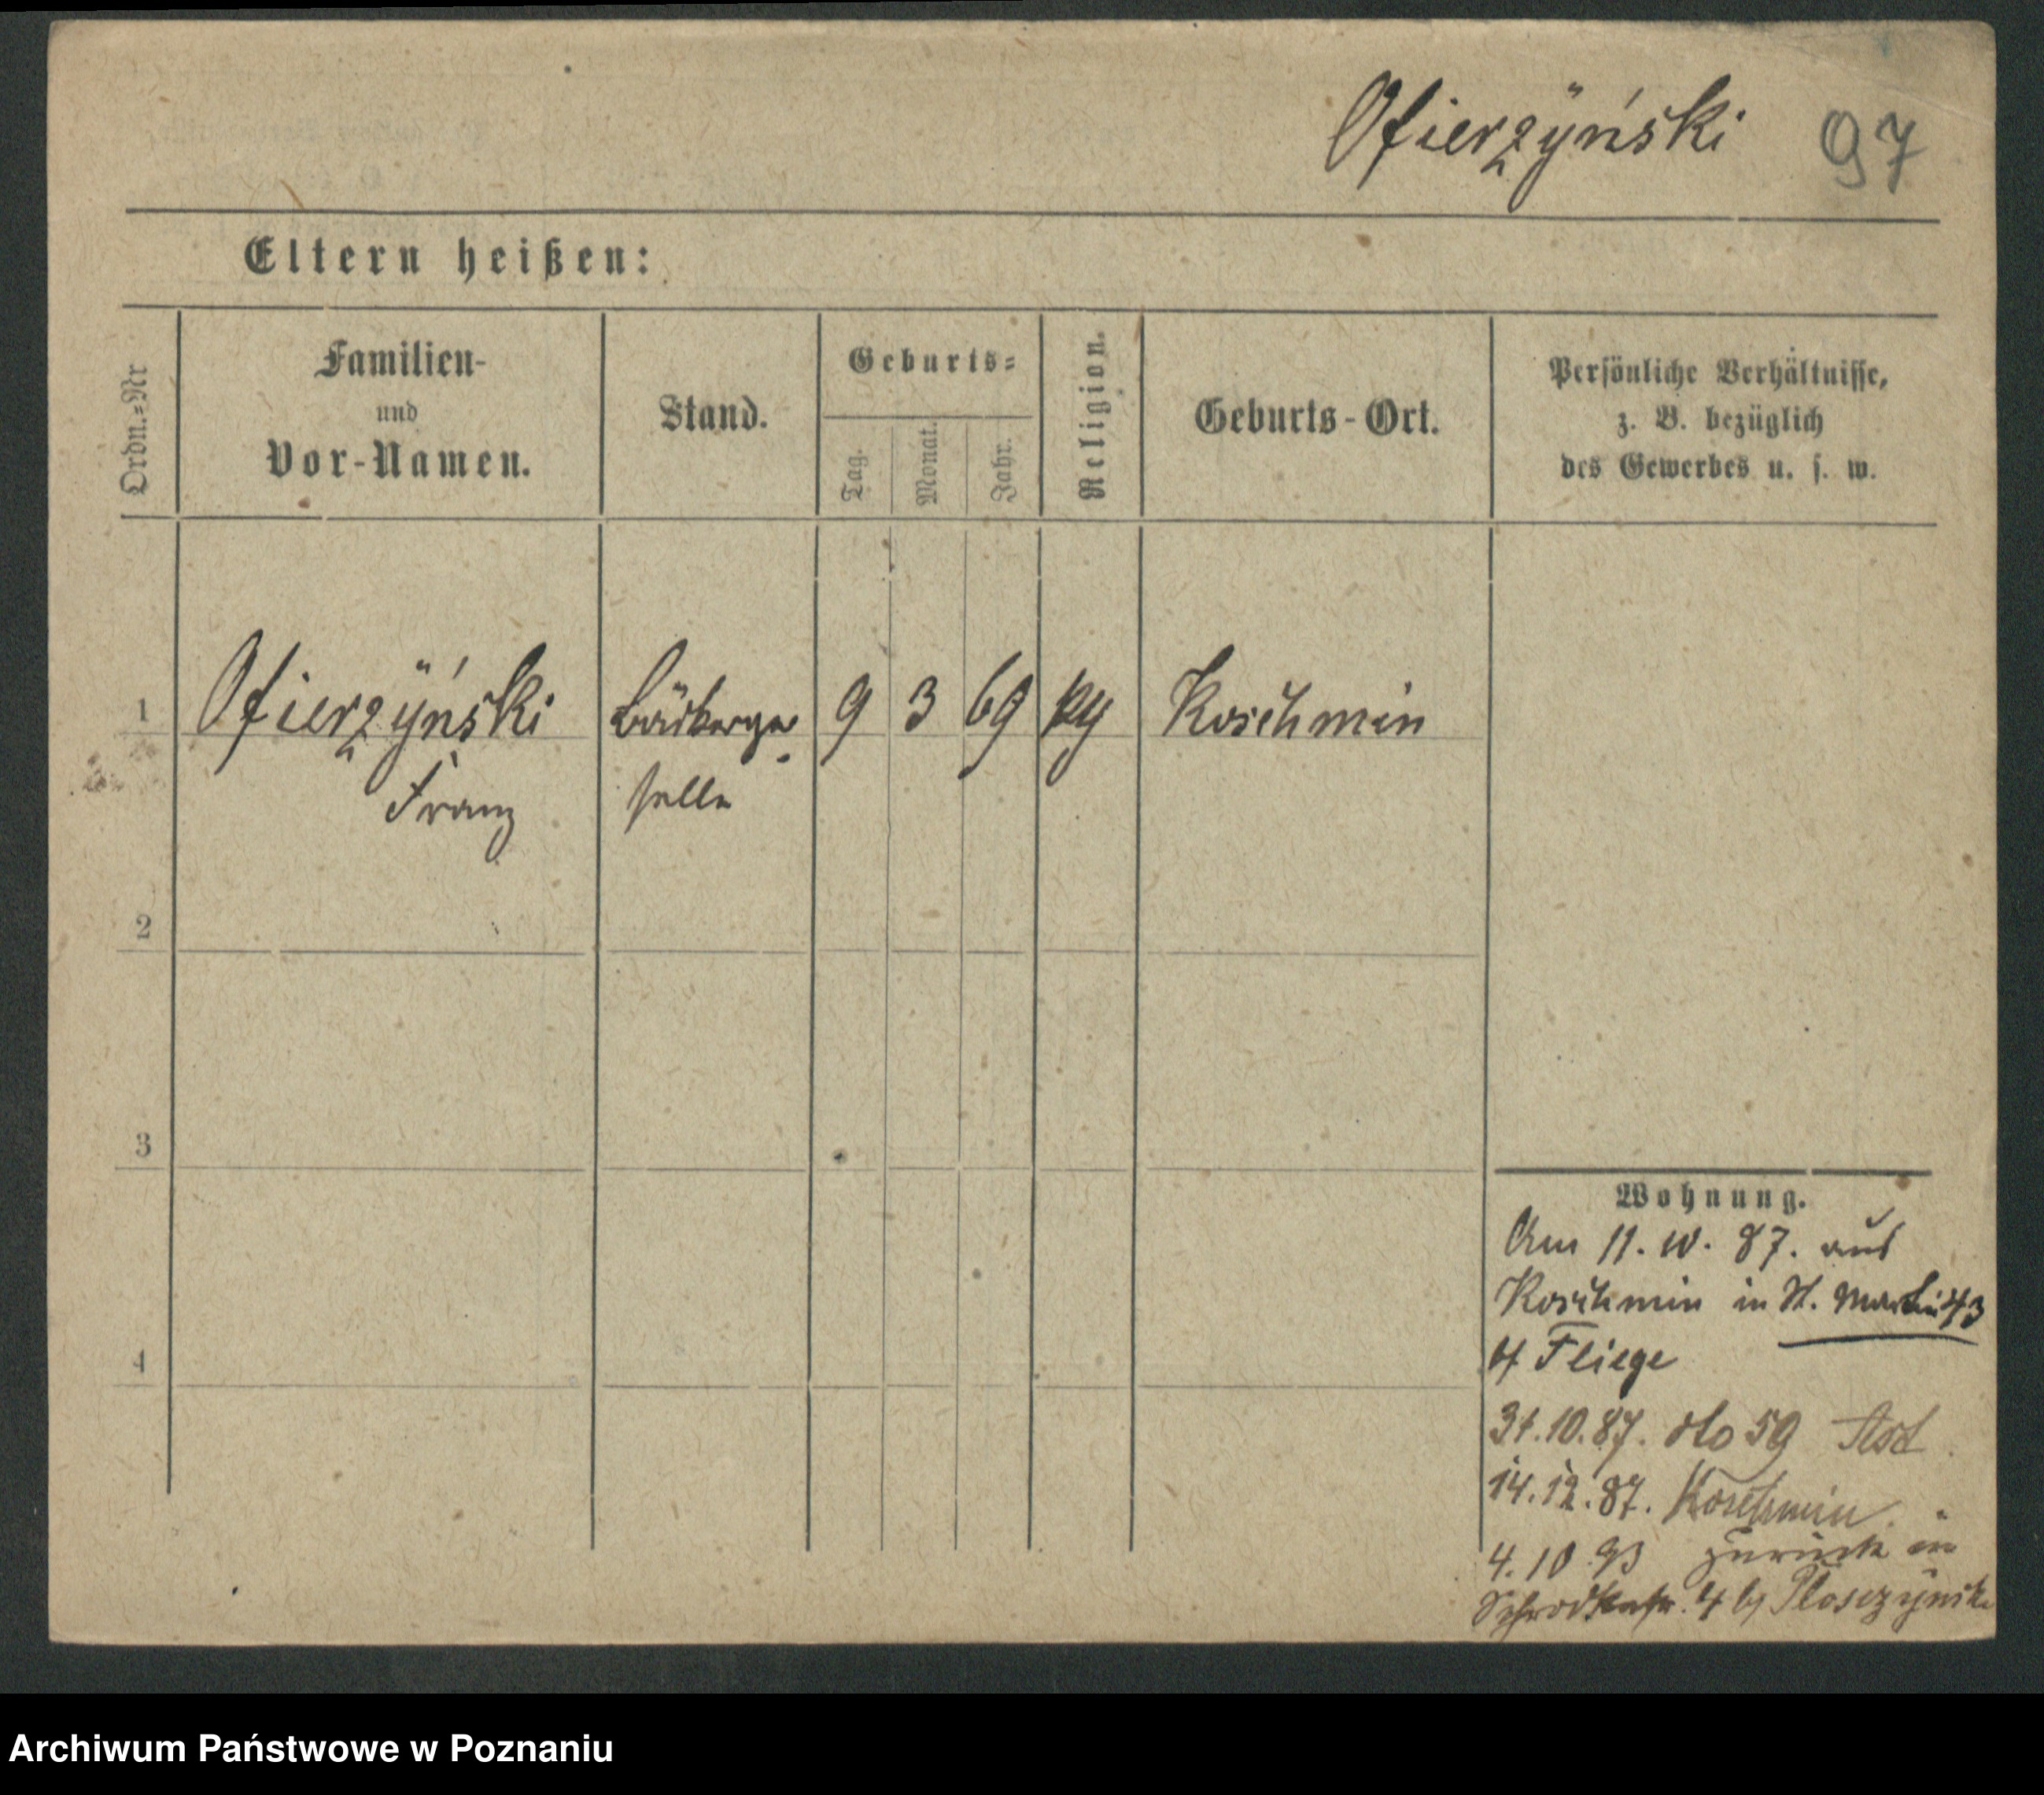 Ofierzÿński 97
Eltern heißen:
Ordn.=Nr
Familien-
und
Vor-Namen.
Stand.
Geburts=
Tag.
Monat.
Jahr.
Religion.
Geburts-Ort.
Persönliche Verhältnisse,
z. B. bezüglich
des Gewerbes u. s. w.
1 Ofierzÿński 9 3 69 Koschmin
Franz selle
2
3
4
Wohnung.
Am 11. 10. 87. aus
Koschmin in St. Martin 43
Fliege
31.10.87. dto 59
14.12.87. Koschmin
4.10 93 zurück in
Schrodkastr. 4
Archiwum Państwowe w Poznaniu